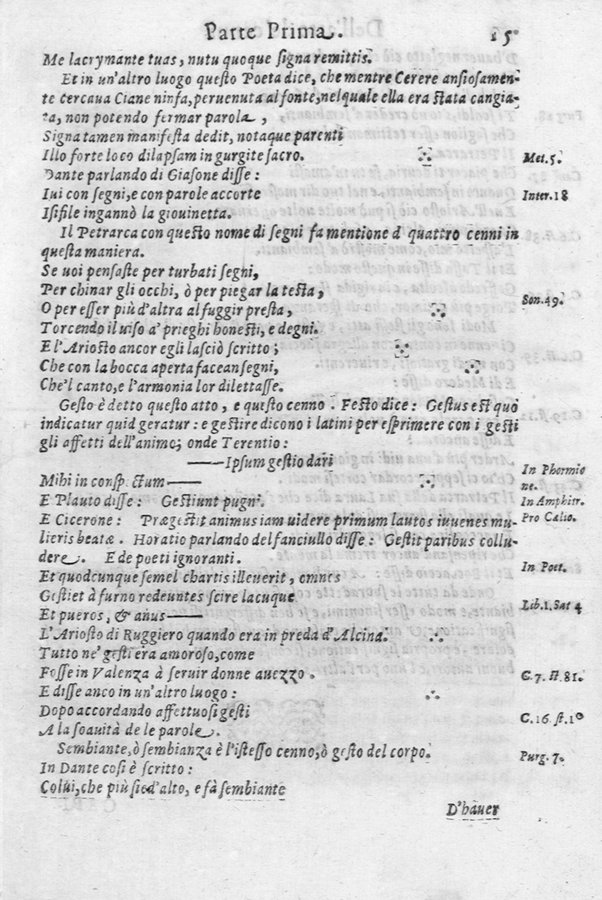 Parte Prima. 15
Me lacrymante tuas, nutu quoque signa remittis.
Et in un'altro luogo questo Poeta dice, che mentre Cerere ansiosamen-
te cercaua Ciane ninfa, peruenuta al fonte, nel quale ella era stata cangia-
ta, non potendo fermar parola,
Signa tamen manifesta dedit, notaque parenti
Illo forte loco dilapsam in gurgite sacro. Met. 5.
Dante parlando di Giasone disse:
Iui con segni, e con parole accorte Infer. 18
Isifile ingannò la giouinetta.
Il Petrarca con questo nome di segni fa mentione d' quattro cenni in
questa maniera.
Se uoi pensaste per turbati segni,
Per chinar gli occhi, ò per piegar la testa,
O per esser più d'altra al fuggir presta, Son. 49.
Torcendo il uiso a' prieghi honesti, e degni.
E l'Ariosto ancor egli lasciò scritto;
Che con la bocca aperta facean segni,
Che'l canto, e l'armonia lor dilettasse.
Gesto è detto questo atto, e questo cenno. Festo dice: Gestus est quò
indicatur quid geratur: e gestire dicono i latini per esprimere con i gesti
gli affetti dell'animo; onde Terentio:
——Ipsum gestio dari In Phormio
Mihi in conspectum—— ne.
E Plauto disse: Gestiunt pugni. In Amphitr.
E Cicerone: Prægestit animus iam uidere primum lautos iuuenes mu- Pro Cælio.
lieris beatæ. Horatio parlando del fanciullo disse: Gestit paribus collu-
dere. E de poeti ignoranti. In Poet.
Et quodcunque semel chartis illeuerit, omnes
Gestiet à furno redeuntes scire lacuque
Et pueros, & anus—— Lib. 1. Sat 4
L'Ariosto di Ruggiero quando era in preda d'Alcina.
Tutto ne' gesti era amoroso, come
Fosse in Valenza à seruir donne auezzo. C. 7. st. 81.
E disse anco in un'altro luogo:
Dopo accordando affettuosi gesti C. 16. st. 10
A la soauità de le parole.
Sembiante, ò sembianza è l'istesso cenno, ò gesto del corpo. Purg. 7.
In Dante così è scritto:
Colui, che più sied'alto, e fà sembiante
D'hauer